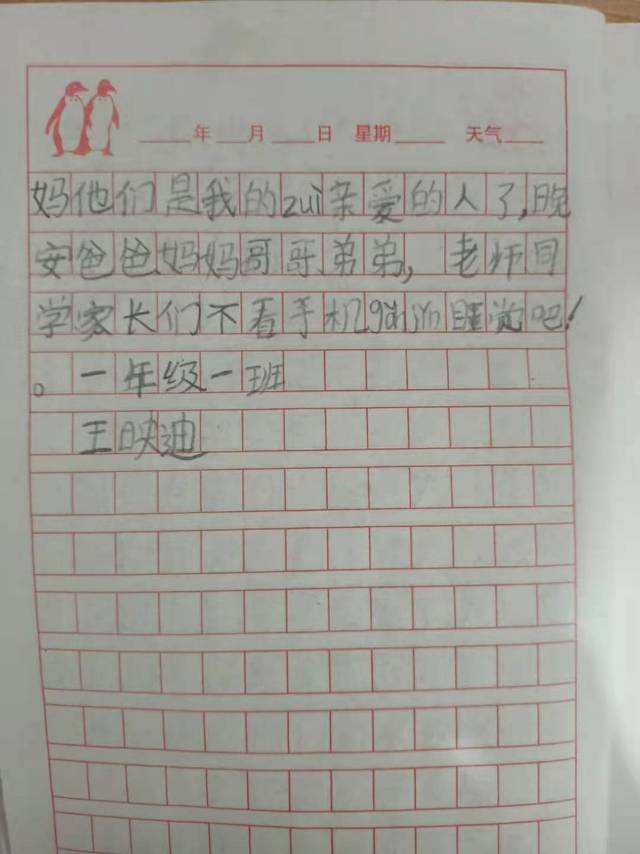 ____年____月____日 星期____ 天气____
妈他们是我的zuì亲爱的人了,晚
安爸爸妈妈哥哥弟弟, 老师同
学家长们不看手机gǎnjǐn睡觉吧!
。一年级一班
王映迪